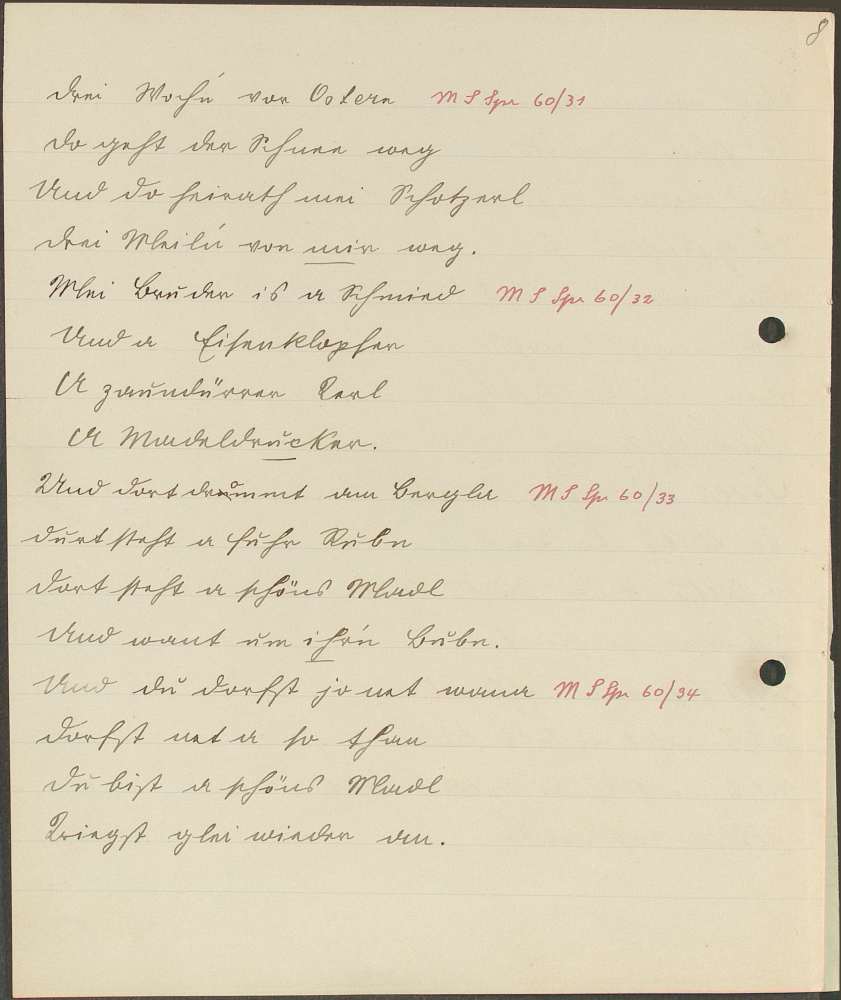 8
Drei Woch'n vor Ostern M S Spr 60/31
Do geht der Schnee weg
Und do heirath mei Schatzerl
Drei Meil'n von mir weg.
Mei Bruder is a Schmied M S Spr 60/32
Und a Eisenklopfer
A zaundürrer Kerl
A Madeldrucker.
Und dort drommt am Bergla M S Spr 60/33
Durt steht a Fuhr Rubn
Dort steht a schöns Madl
Und want um ihr'n Bubn.
Und du dorfst jo net wana M S Spr 60/34
Dorfst net a so than
Du bist a schöns Madl
Kriegst glei wieder an.